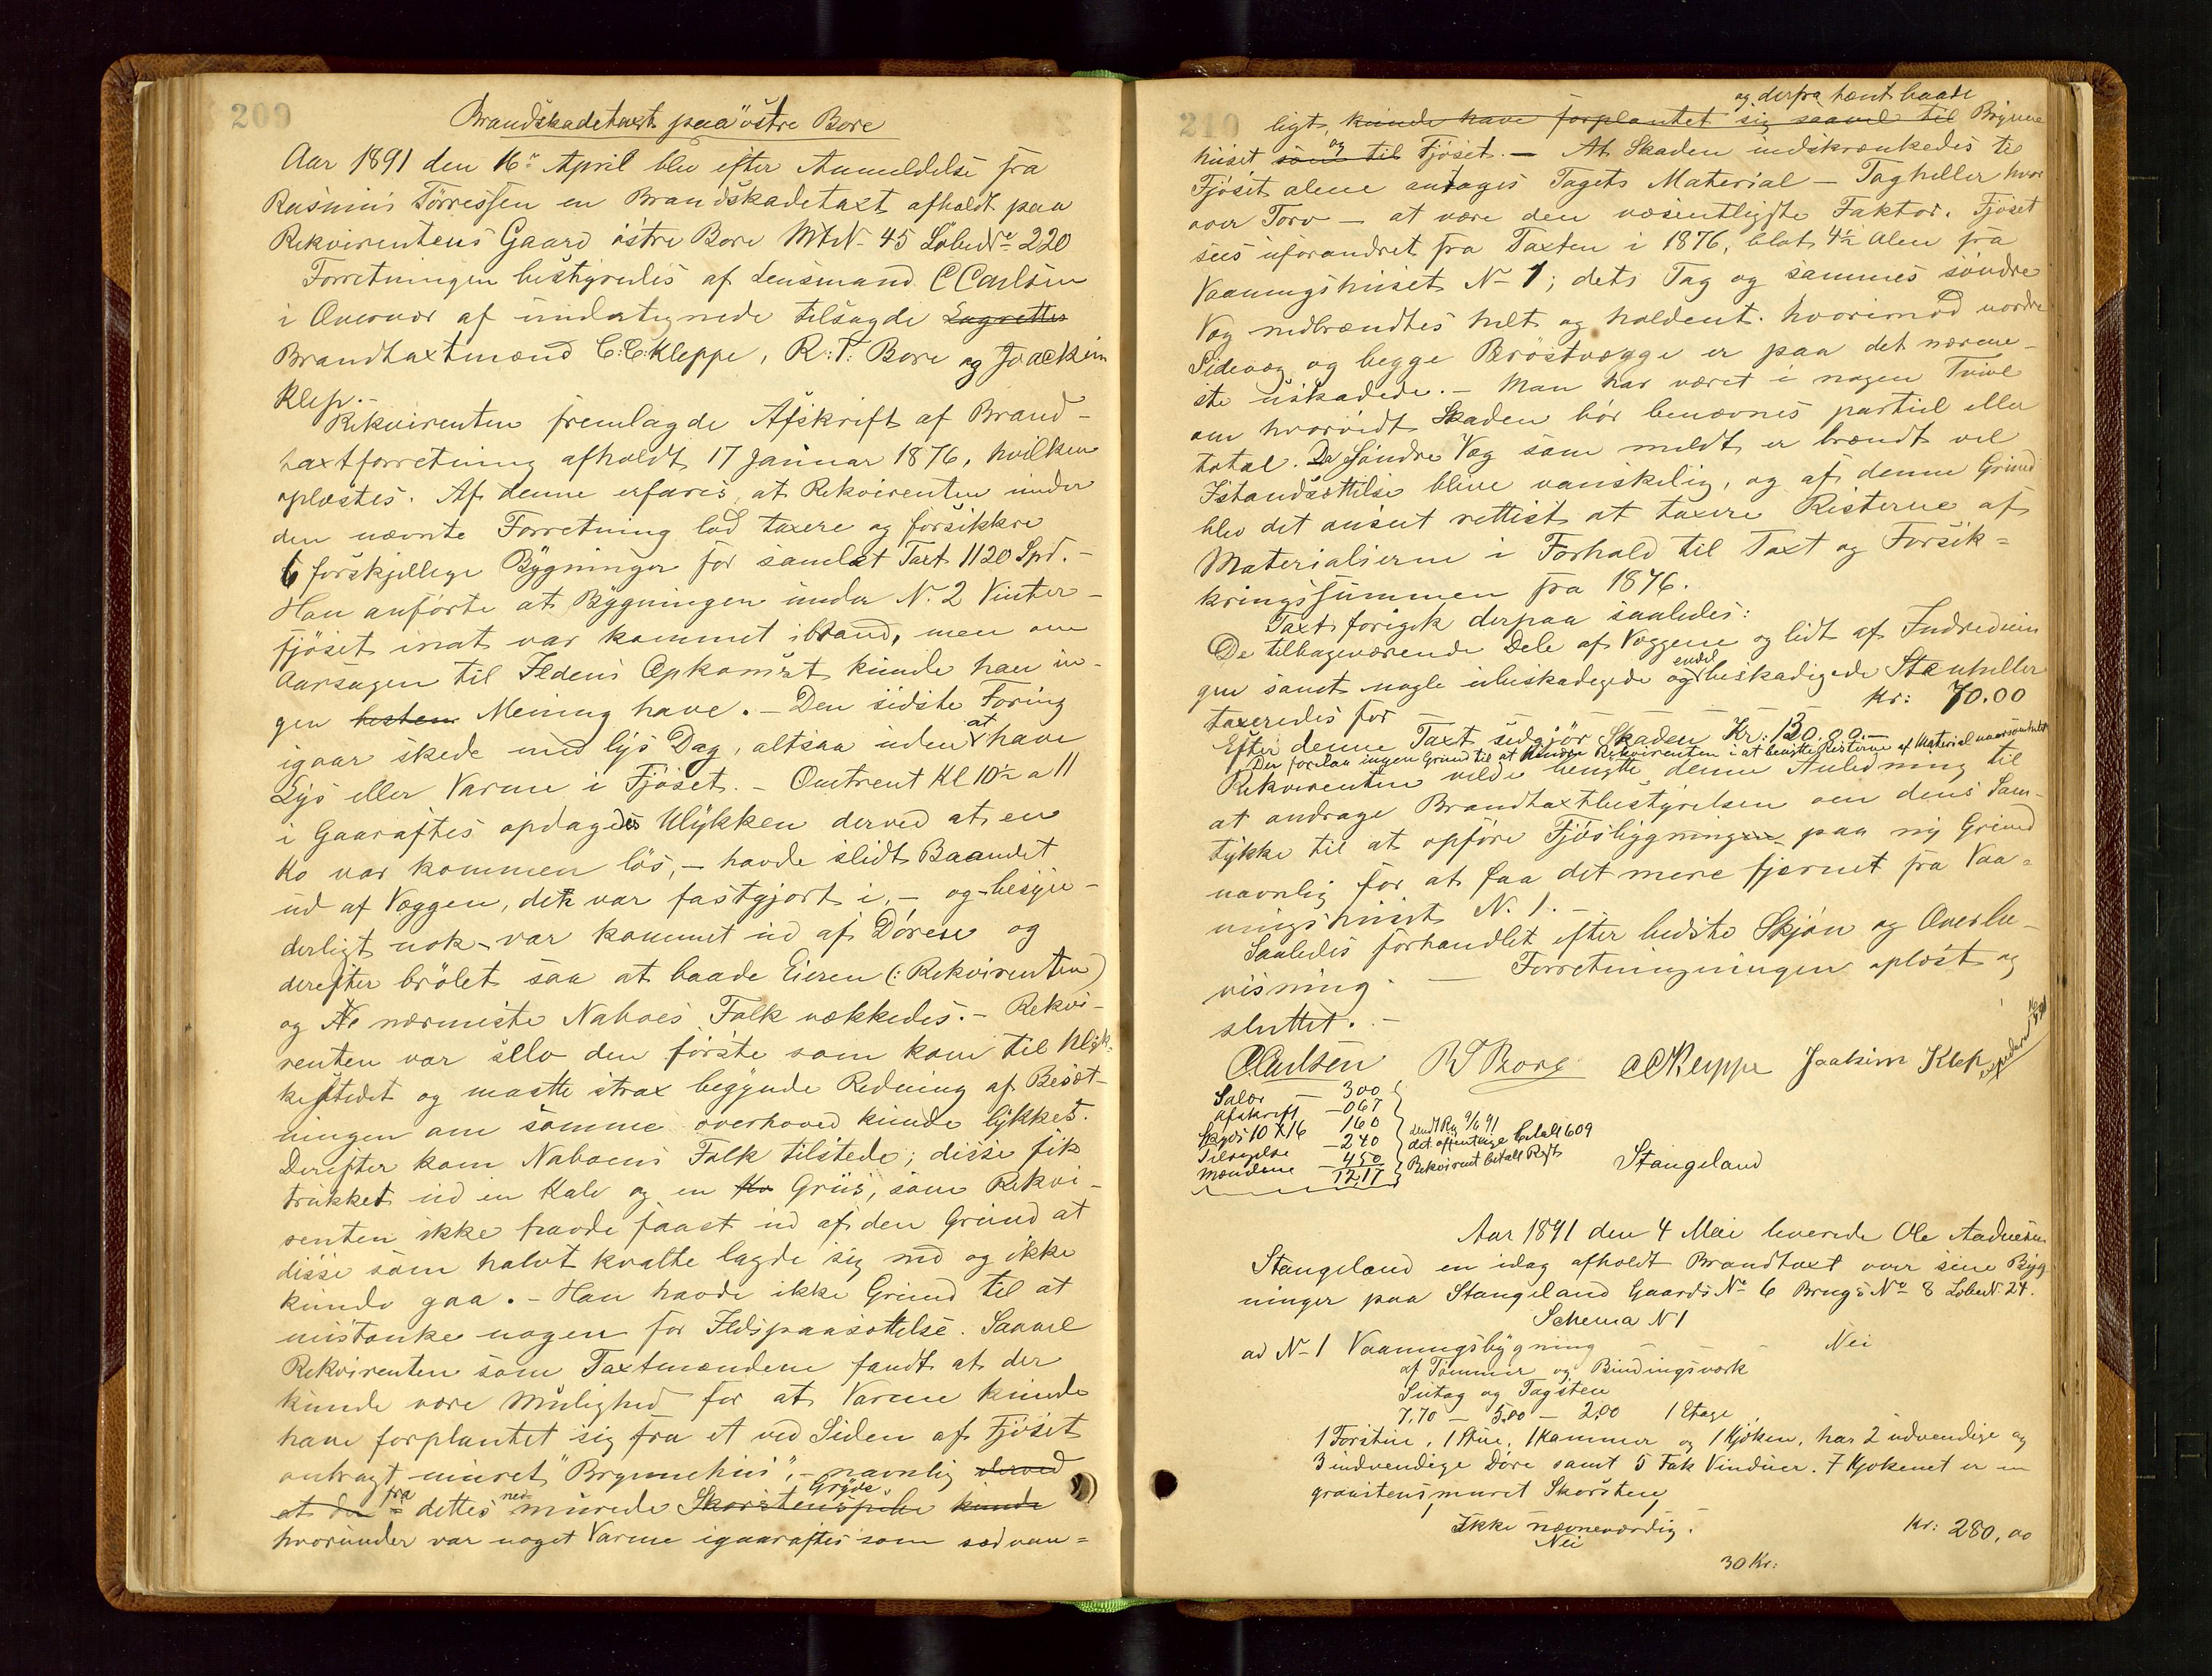 209
Brandskadetaxt paa östre Bore
Aar 1891 den 16de April blev efter Anmeldelse fra
Rasmus Törressen en Brandskadetaxt afholdt paa
Rekvirentens Gaard östre Bore Mt№ 45 Löbe№ 220
Forretningen bestyredes af Lensmand C Carlsen
i Overvær af undertegnede tilsagde Lagrettes
Brandtaxtmænd C.C. Kleppe, R.T. Bore og Joackim
Klep.-
Rekvirenten fremlagde Afskrift af Brand-
taxtforretning afholdt 17 Januar 1876, hvilken
oplæstes. Af denne erfares, at Rekvirenten under
den nævnte Forretning lod taxere og forsikkre
6 forskjellige Bygninger for samlet Taxt 1120 Spd.-
Han anförte at Bygningen under N. 2 Vinter-
fjöset inat var kommet ibrand, men om
Aarsagen til Ildens Opkomst kunde han in-
gen bestem Mening have. - Den sidste Foring
igaar skede med lys Dag, altsaa uden at have
Lys eller Varme i Fjöset. - Omtrent Kl 10½ a 11
i Gaaraftes opdagedes Ulykken derved at en
Ko var kommen lös, - havde slidt Baandet
ud af Væggen, det var fastgjort i, - og besyn-
derligt nok - var kommet ud af Dören og
derefter brölet saa at baade Eieren (: Rekvirenten)
og de nærmeste Naboes Folk vækkedes. - Rekvi-
renten var selv den förste som kom til Ulyk-
kestedet og maatte strax begynde Redning af Besæt-
ningen om samme overhoved kunde lykkes.
Derefter kom Naboens Folk tilstede; disse fik
trukket ud en Kalv og en Ko Griis, som Rekvi-
renten ikke havde faaet ud af den Grund at
disse som halvt kvalte lagde sig ned og ikke
kunde gaa. - Han havde ikke Grund til at
mistænke nogen for Ildspaasættelse. Saavel
Rekvirenten som Taxtmændene fandt at der
kunde være Mulighed for at Varme kunde
have forplantet sig fra et ved Siden af Fjöset
anbragt muret "Bryggehus", - navnlig derved
at der i fra dettes ned murede Skorstenspibe Gryde kunde
hvorunder var noget Varme igaaraftes som sædvan=
210
og derfra tænt baade
ligt, kunde have forplantet sig saavel til Brygge
huset som og til Fjöset. - At Skaden indskrænkedes til
Fjöset alene antages Tagets Material - Tagheller hvor
over Torv - at være den væsentligste Faktor. Fjöset
sees uforandret fra Taxten i 1876, blot 4½ Alen fra
Vaaningshuset N- 1; dets Tag og sammes söndre
Væg nedbrændtes helt og holdent. hvorimod nordre
Sidevæg og begge Bröstvægge er paa det nærme-
ste uskadede. - Man har været i nogen Tvivl
om hvorvidt Skaden bör benævnes partiel eller
total. Da Söndre Væg som meldt er brændt vil
Istandsættelse blive vanskelig, og af denne Grund
blev det anseet rettest at taxere Resterne af
Materialierne i Forhold til Taxt og Forsik=
kringssummen fra 1876.
Taxt foregik derpaa saaledes:
De tilbageværende Dele af Væggene og lidt af Indrednin
gen samt nogle ubeskadigede og endel beskadigede Stenheller
taxeredes for Kr: 70.00
Efter denne Taxt udgjör Skaden Kr: 130.00.-
Der forelaa ingen Grund til at hindre Rekvirenten i at benytte Resterne af Material naarsomhelst
Rekvirenten vilde benytte denne Anledning til
at andrage Brandtaxtbestyrelsen om dens Sam-
tykke til at opföre Fjösbygningen paa ny Grund
navnlig for at faa det mere fjernet fra Vaa-
ningshuset N. 1. -
Saaledes forhandlet efter bedste Skjön og Overbe-
visning. - Forretningningen oplæst og
sluttet. -
CCarlsen RTBore CCKleppe Joakim Klep
Salær - 300
Afskrift - 067
Skyds 10 X 16 160
Tilsigelse - 240
Mændene - 450
1217
sendt Rg 9/6 91
det offentlige betalt 609
Rekvirent betalt Rest
Stangeland
Aar 1891 den 4 Mai leverede Ole Aadnesen
Stangeland en idag afholdt Brandtaxt over sine Byg
ninger paa Stangeland Gaards № 6 Brugs № 8 LöbeN. 24.
Schema N 1
ad N- 1 Vaaningsbygning - - Nei
af Tömmer og Bindingsværk
Sutag og Tagsten
7,70 - 5,00 - 2,00 1 Etage
1 Forstue, 1 Stue, 1 Kammer og 1 Kjöken, har 2 udvendige og
3 indvendige Döre samt 5 Fak Vinduer. I Kjökenet er en
graastensmuret Skorsten,
Ikke nævneværdig. Kr: 280,00
Nei
30 Kr: